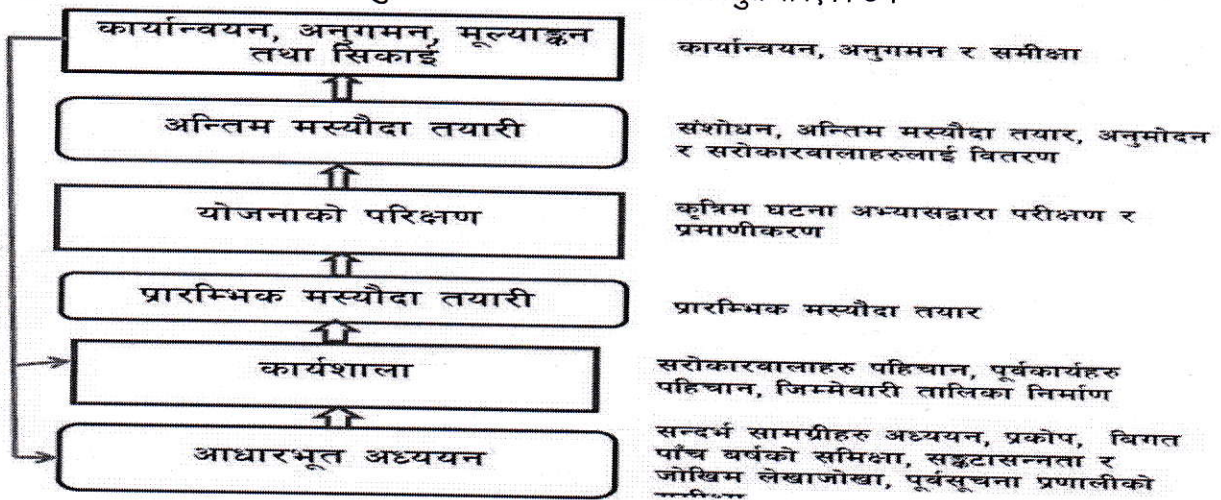 कार्यान्वयन, अनुगमन, मूल्याङ्कन
तथा सिकाई
कार्यान्वयन, अनुगमन र समीक्षा
अन्तिम मस्यौदा तयारी
संशोधन, अन्तिम मस्यौदा तयार, अनुमोदन
र सरोकारवालाहरुलाई वितरण
योजनाको परिक्षण
कृत्रिम घटना अभ्यासद्वारा परीक्षण र
प्रमाणीकरण
प्रारम्भिक मस्यौदा तयारी
प्रारम्भिक मस्यौदा तयार
कार्यशाला
सरोकारवालाहरु पहिचान, पूर्वकार्यहरु
पहिचान, जिम्मेवारी तालिका निर्माण
आधारभूत अध्ययन
सन्दर्भ सामग्रीहरु अध्ययन, प्रकोप, विगत
पाँच वर्षको समिक्षा, सङ्कटासन्नता र
जोखिम लेखाजोखा, पूर्वसूचना प्रणालीको